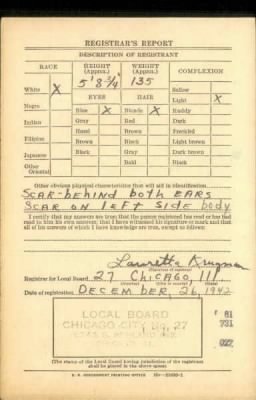 REGISTRAR'S REPORT
DESCRIPTION OF REGISTRANT
RACE HEIGHT (Approx.) WEIGHT (Approx.) COMPLEXION
5' 8 3/4" 135 Sallow
White X EYES HAIR Light X
Negro Blue X Blonde X Ruddy
Indian Gray Red Dark
Filipino Hazel Brown Freckled
Japanese Brown Black Light brown
Other Oriental Black Gray Dark brown
Bald Black
Other obvious physical characteristics that will aid in identification
SCAR-behind both EARS
SCAR ON left SIDE body
I certify that my answers are true; that the person registered has read or has had
read to him his own answers; that I have witnessed his signature or mark and that
all of his answers of which I have knowledge are true, except as follows:
(Signature of registrar)
Registrar for Local Board 27 Chicago, Ill
(Number) (City or county) (State)
Date of registration DECEMBER, 26, 1942
LOCAL BOARD
CHICAGO CITY No. 27
81
731
027
(The stamp of the Local Board having jurisdiction of the registrant
shall be placed in the above space)
U. S. GOVERNMENT PRINTING OFFICE